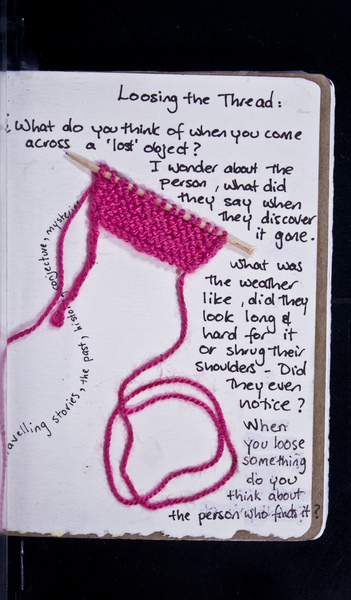 Loosing the Thread:
What do you think of when you come
across a 'lost' object?
I wonder about the
person, what did
they say when
they discover
it gone.
What was
the weather
like, did they
look long &
hard for it
or shrug their
shoulders - Did
They even
notice?
When
you loose
something
do you
think about
the person who finds it?
conjecture, mysteries
travelling stories, the past, history